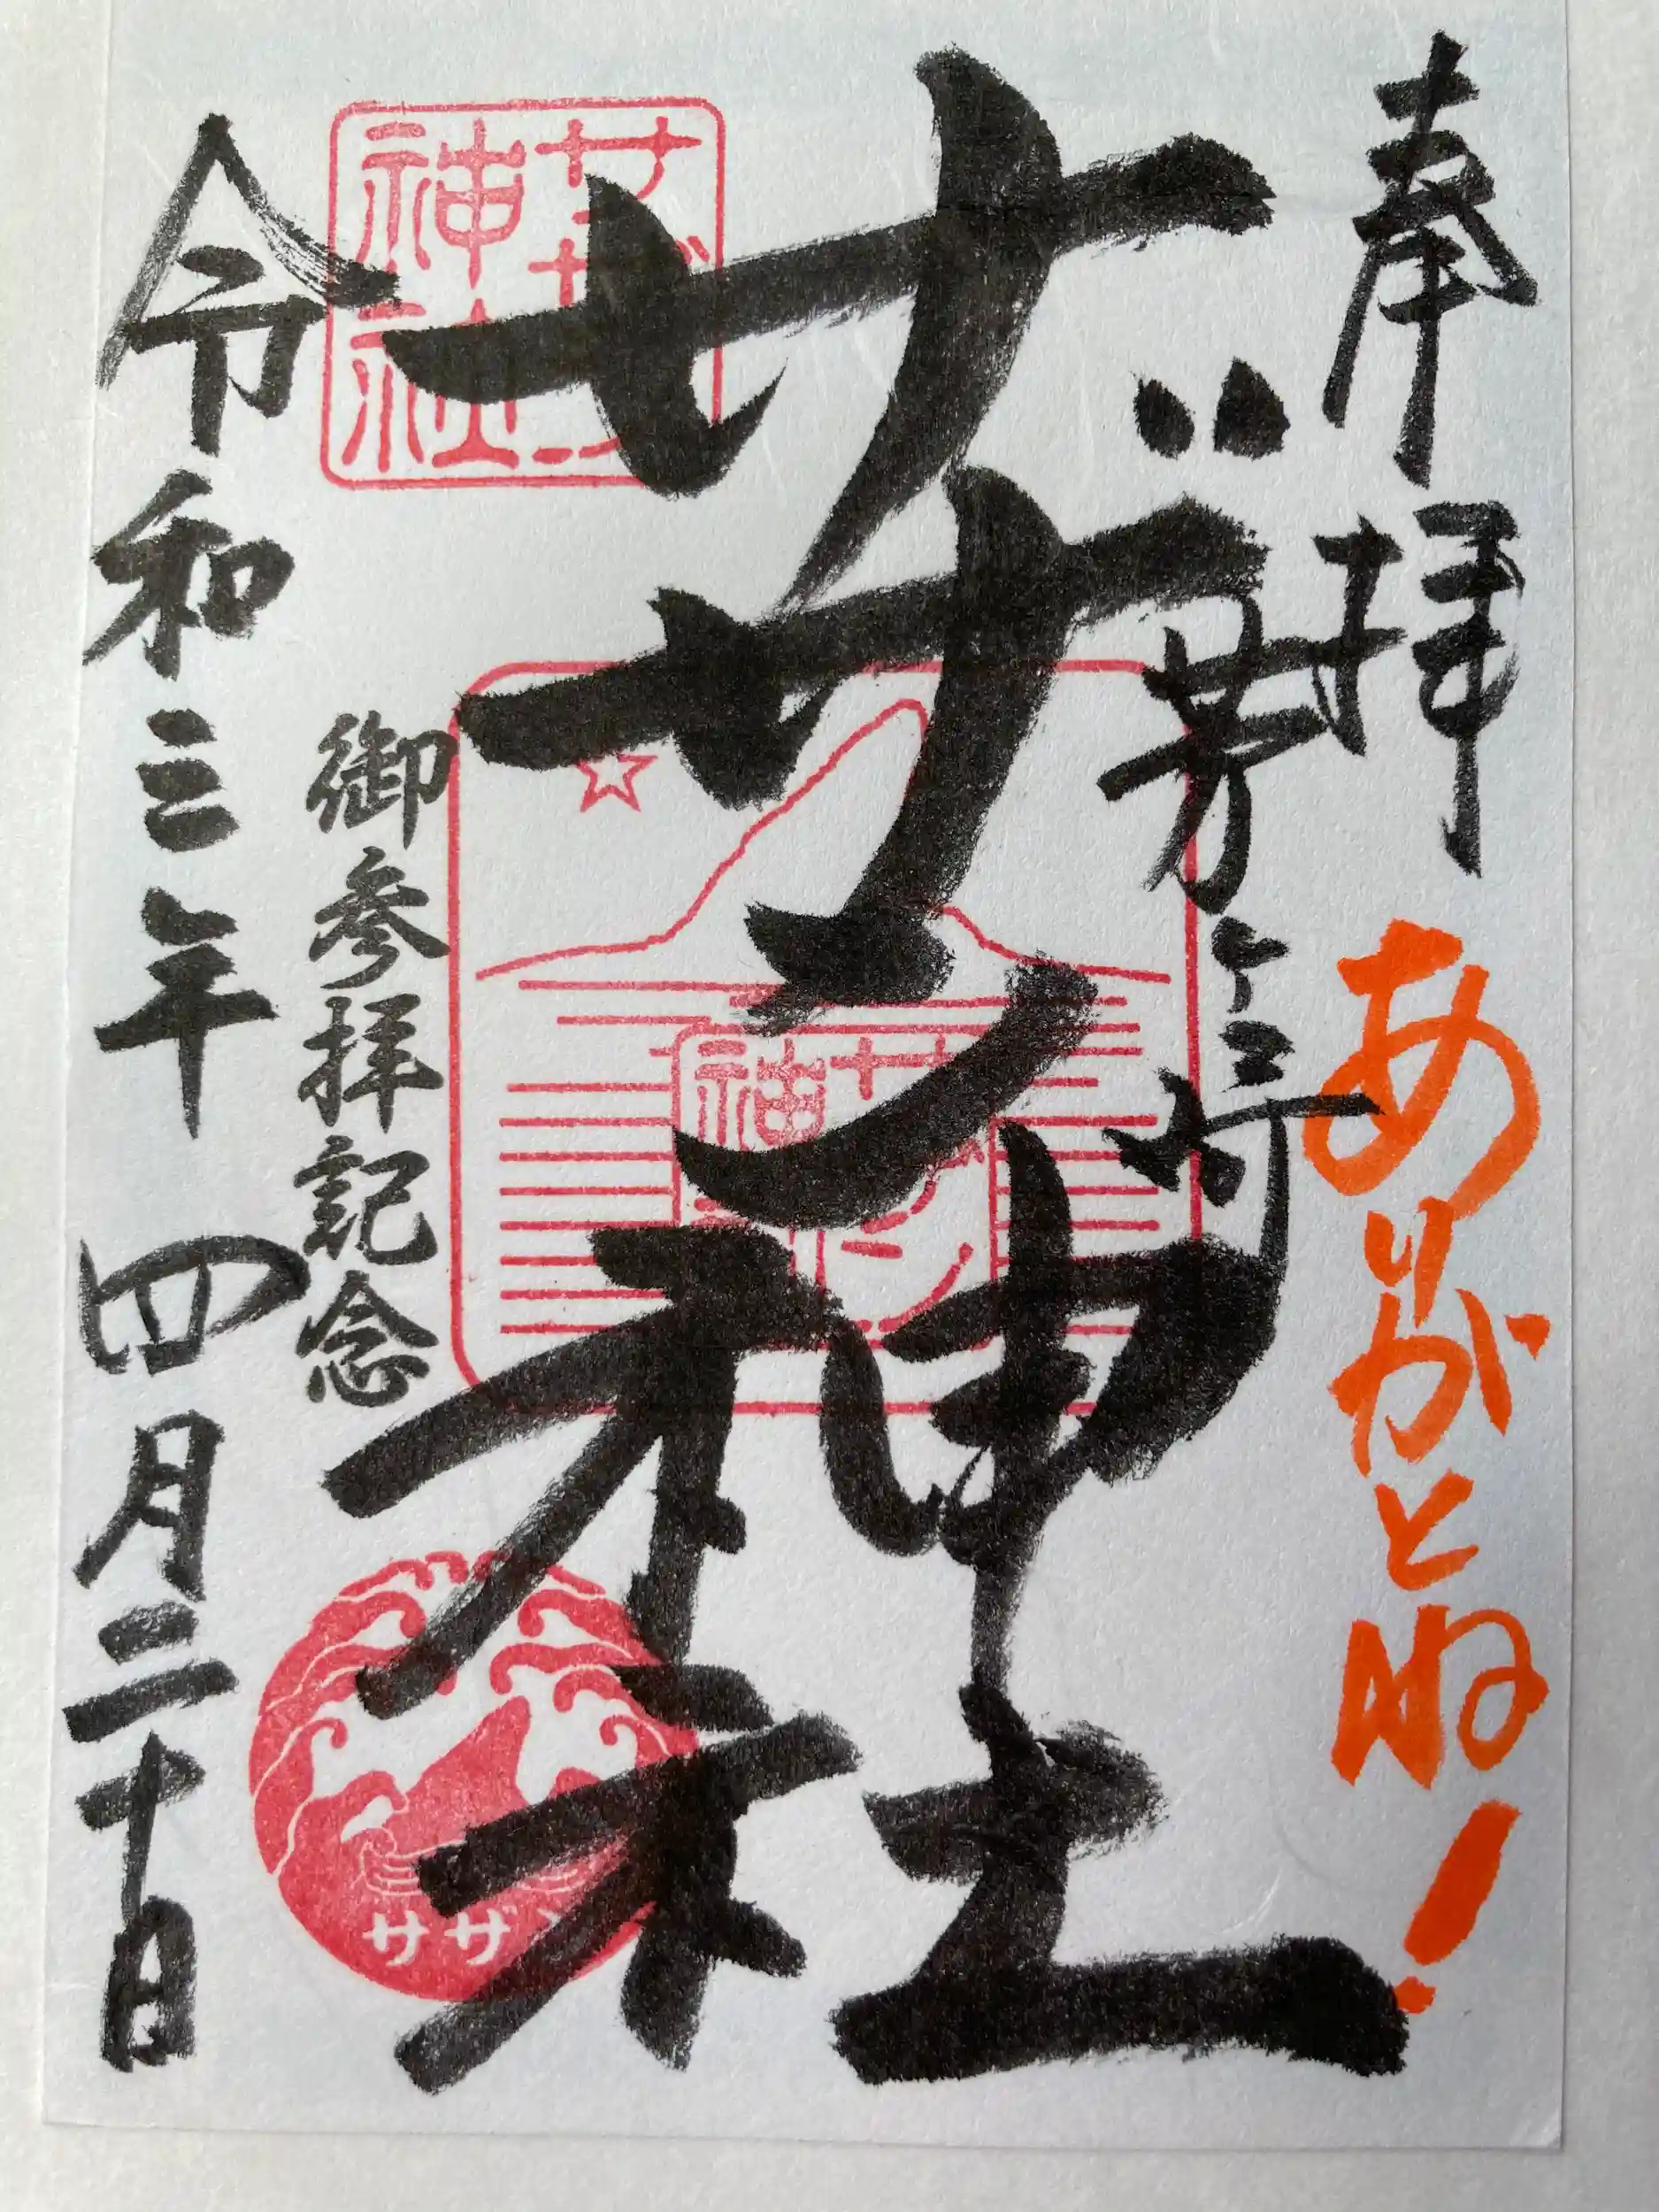 奉拝
ありがとね!
茅ヶ崎
サザン神社
御参拝記念
令和三年 四月二十日
サザン神社
サザン神社
サザン